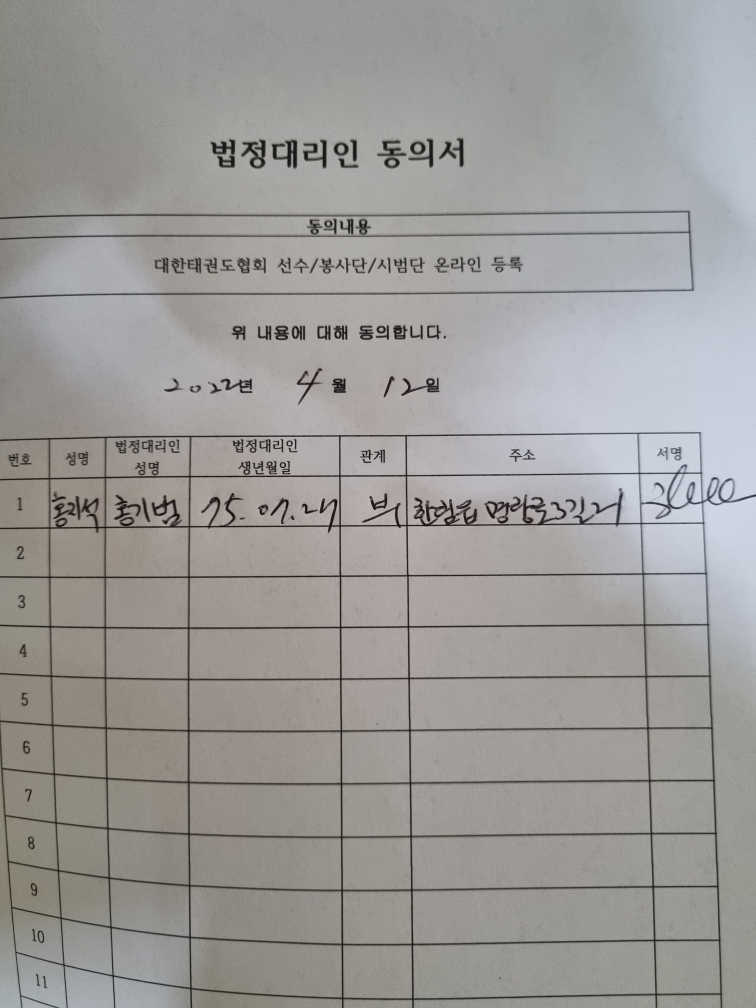 법정대리인 동의서
동의내용
대한태권도협회 선수/봉사단/시범단 온라인 등록
위 내용에 대해 동의합니다.
2022년 4월 12일
번호 성명 법정대리인 성명 법정대리인 생년월일 관계 주소 서명
1 홍지석 홍기범 75. 07. 27 부 한림읍 명랑로3길 21
2
3
4
5
6
7
8
9
10
11